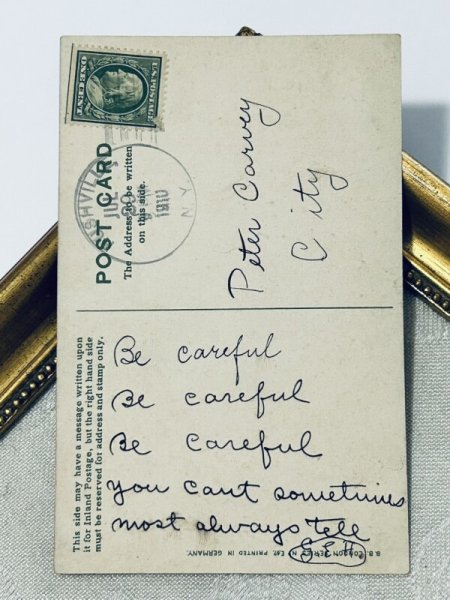 U.S. POSTAGE
ONE CENT
ASHVILLE
JUL
1910
N.Y.
POST CARD
The Address to be written
on this side.
Peter Carvey
City
This side may have a message written upon
it for Inland Postage, but the right hand side
must be reserved for address and stamp only.
Be careful
Be careful
Be careful
you cant sometimes
most always tell
C.E.H.
B.B. LONDON SERIES PRINTED IN GERMANY.